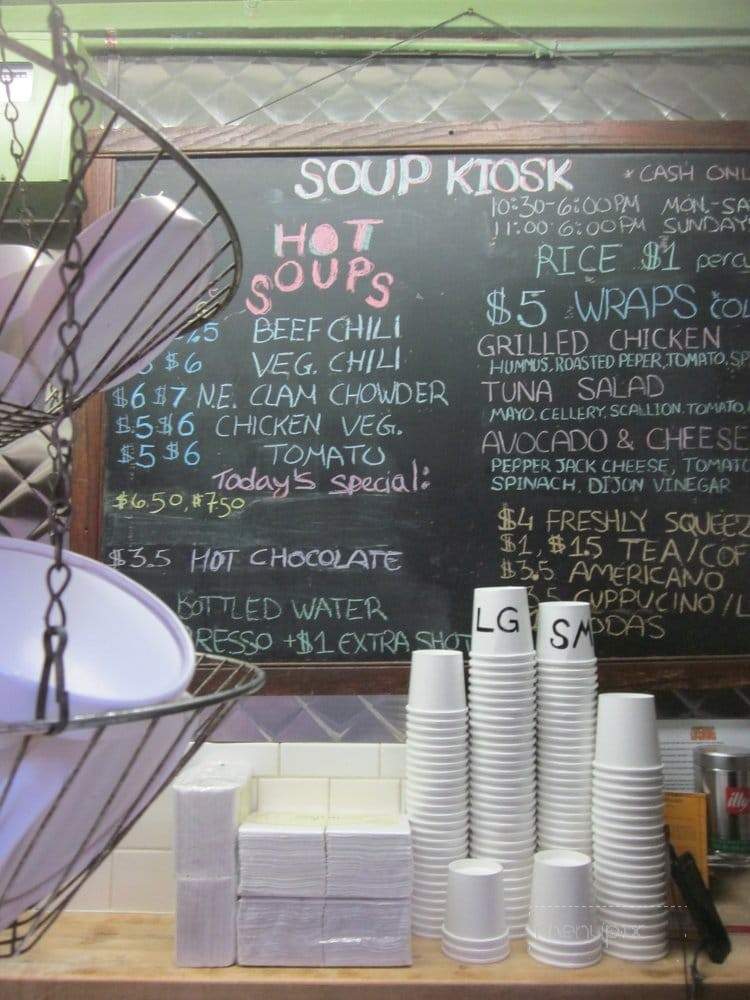 SOUP KIOSK
* CASH ONL
10:30-6:00PM MON.-SA
11:00 6:00PM SUNDAY
HOT
SOUPS
BEEF CHILI
$6 VEG. CHILI
$6 $7 N.E. CLAM CHOWDER
$5 $6 CHICKEN VEG.
$5 $6 TOMATO
Today's special:
$6.50, $7.50
$3.5 HOT CHOCOLATE
BOTTLED WATER
RESSO +$1 EXTRA SHOT
RICE $1 percu
$5 WRAPS COL
GRILLED CHICKEN
HUMMUS, ROASTED PEPER, TOMATO, SP
TUNA SALAD
MAYO, CELLERY, SCALLION, TOMATO,
AVOCADO & CHEESE
PEPPER JACK CHEESE, TOMATO
SPINACH, DIJON VINEGAR
$4 FRESHLY SQUEEZ
$1, $1.5 TEA/COF
$3.5 AMERICANO
3.5 CUPPUCINO/L
ODAS
LG
SM
illy
menupix